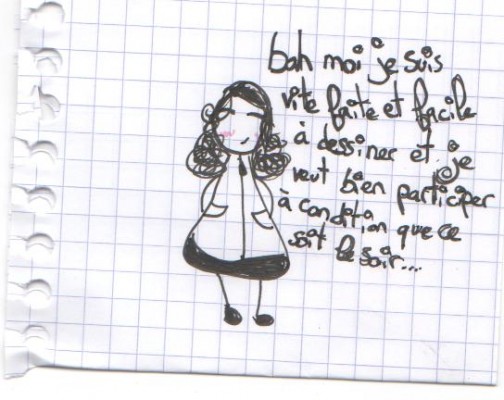 bah moi je suis
vite faite et facile
à dessiner et je
veut bien participer
à condition que ce
soit le soir...